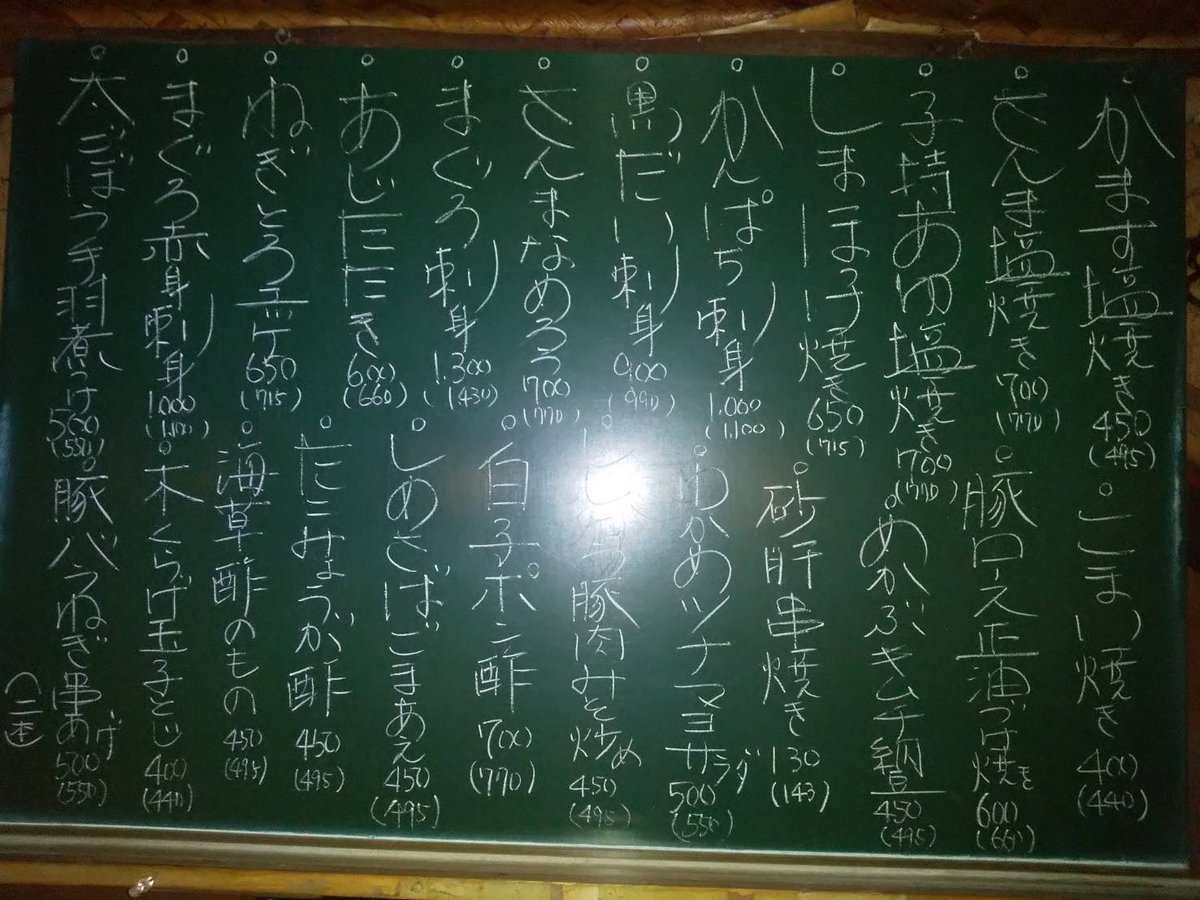 ○かます塩焼き 450 (495)
○さんま塩焼き 700 (770)
○子持あゆ塩焼き 700 (770)
○しまほっけ焼き 650 (715)
○かんぱち刺身 1.000 (1.100)
○黒だい刺身 900 (990)
○さんまなめろう 700 (770)
○まぐろ刺身 1.300 (1430)
○あじたたき 600 (660)
○ねぎとろ 650 (715)
○まぐろ赤身刺身 1.000 (1.100)
○太ごぼう手羽煮つけ 500 (550)
○こまい焼き 400 (440)
○豚ロース正油づけ焼き 600 (660)
○めかぶキムチ納豆 450 (495)
○砂肝串焼き 130 (143)
○わかめツナマヨサラダ 500 (550)
豚肉みそ炒め 450 (495)
○白子ポン酢 700 (770)
○しめさばごまあえ 450 (495)
○たこみょうが酢 450 (495)
○海草酢のもの 450 (495)
○木くらげ玉子とじ 400 (440)
○豚バラねぎ串あげ 500 (550)
(二本)